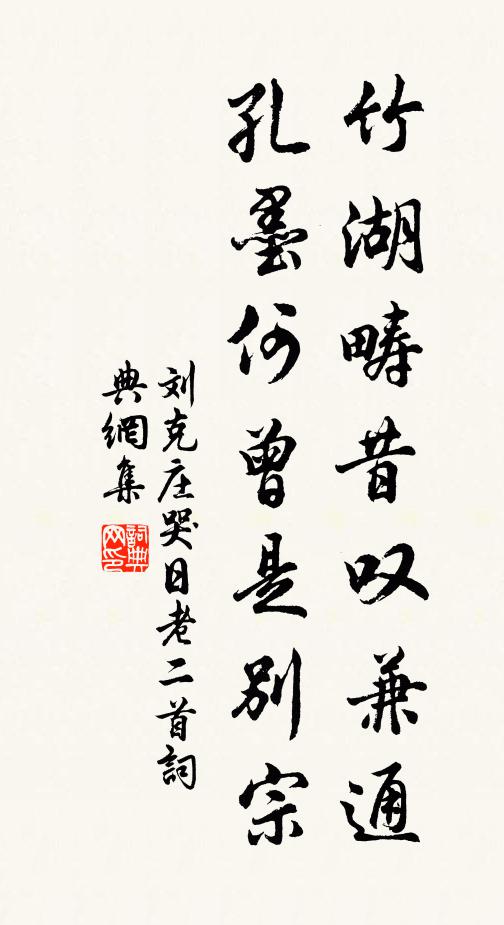 竹湖畴昔叹兼通
孔墨何曾是别宗
刘克庄哭日老二首詞
典網集
詞典
网印